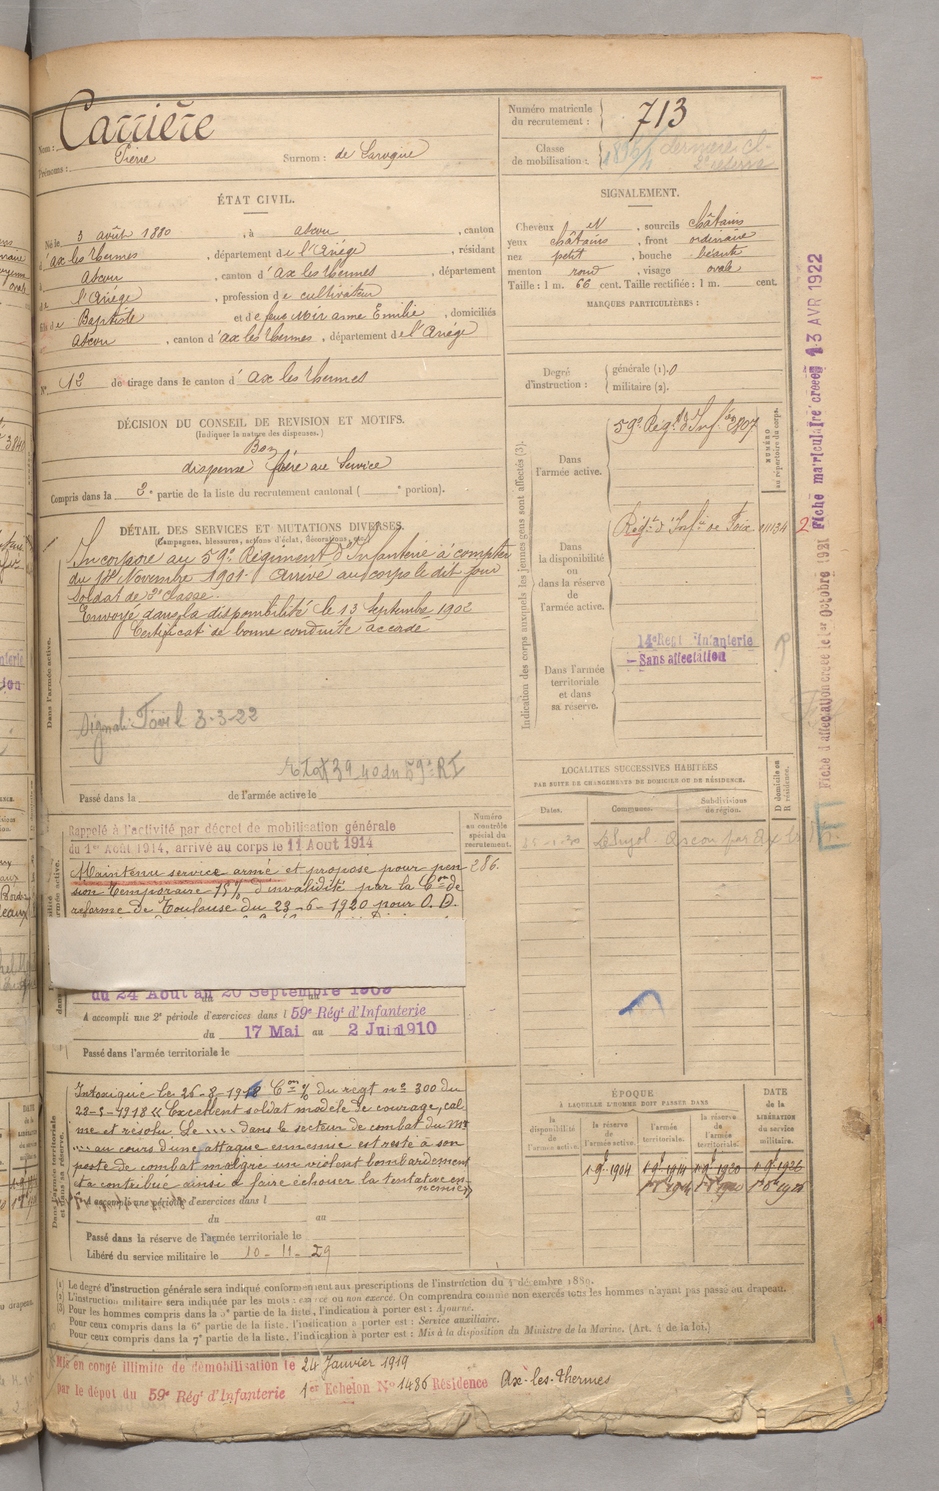 Nom : Carrière
Prénoms : Pierre Surnom : de Laroque
Numéro matricule du recrutement : 713
Classe de mobilisation :
ÉTAT CIVIL.
Né le 3 août 1880, à Ascou, canton
d'Ax les Thermes, département de l'Ariège, résidant
à Ascou, canton d'Ax les Thermes, département
de l'Ariège, profession de cultivateur
fils de Baptiste et de feue Noir Anne Emilie, domiciliés
à Ascou, canton d'ax les Thermes, département de l'Ariége
N° 12 de tirage dans le canton d'Ax les Thermes
SIGNALEMENT.
Cheveux N, sourcils châtains
yeux châtains, front ordinaire
nez petit, bouche béante
menton rond, visage ovale
Taille : 1 m. 66 cent. Taille rectifiée : 1 m. cent.
MARQUES PARTICULIÈRES :
Degré d'instruction : générale (1). 0
militaire (2).
DÉCISION DU CONSEIL DE REVISION ET MOTIFS.
(Indiquer la nature des dispenses.)
Bon
dispensé frère au Service
Compris dans la 3e partie de la liste du recrutement cantonal ( e portion).
DÉTAIL DES SERVICES ET MUTATIONS DIVERSES.
(Campagnes, blessures, actions d'éclat, décorations, etc.)
Dans l'armée active.
Incorporé au 59e Régiment d'Infanterie à compter
du 14 Novembre 1901. Arrivé au corps le dit jour
Soldat de 2e classe.
Envoyé dans la disponibilité le 13 Septembre 1902
Certificat de bonne conduite accordé
Signal. Foix l 3-3-22
39 40 du 59e RI
Passé dans la de l'armée active le
Indication des corps auxquels les jeunes gens sont affectés (3).
NUMÉRO au répertoire du corps.
Dans l'armée active.
59e Régt d'Infie 2807
Dans la disponibilité ou dans la réserve de l'armée active.
Régt d'Infie de Foix 11134
Dans l'armée territoriale et dans sa réserve.
14e Régt Infanterie
- Sans affectation
LOCALITÉS SUCCESSIVES HABITÉES
PAR SUITE DE CHANGEMENTS DE DOMICILE OU DE RÉSIDENCE.
Dates. Communes. Subdivisions de région. D domicile ou R résidence.
Numéro au contrôle spécial du recrutement.
286.
Rappelé à l'activité par décret de mobilisation générale
du 1er Août 1914, arrivé au corps le 11 Août 1914
Maintenu service armé et proposé pour pen
sion temporaire 15% d'invalidité par la Con de
réforme de Toulouse du 23-6-1920 pour O. D.
du 24 Août au 20 Septembre
A accompli une 2e période d'exercices dans l 59e Régt d'Infanterie
du 17 Mai au 2 Juin 1910
Passé dans l'armée territoriale le
Dans l'armée territoriale et dans sa réserve.
Intoxiqué le 26-8-1918 Con % du regt n° 300 du
22-5-1918 « Excellent soldat modèle de courage, cal-
me et résolu Le .... dans le secteur de combat du
.... au cours d'une attaque ennemie est resté à son
poste de combat malgré un violent bombardement
et a contribué ainsi à faire échouer la tentative en-
nemie »
A accompli une période d'exercices dans l
du au
Passé dans la réserve de l'armée territoriale le
Libéré du service militaire le 10-11-29
ÉPOQUE
À LAQUELLE L'HOMME DOIT PASSER DANS
la disponibilité de l'armée active. la réserve de l'armée active. l'armée territoriale. la réserve de l'armée territoriale. DATE de la LIBÉRATION du service militaire.
1-9bre 1904 1-9bre 1914 1-9bre 1920 1-9bre 1926
(1) Le degré d'instruction générale sera indiqué conformément aux prescriptions de l'instruction du 4 décembre 1889.
(2) L'instruction militaire sera indiquée par les mots : exercé ou non exercé. On comprendra comme non exercés tous les hommes n'ayant pas passé au drapeau.
(3) Pour les hommes compris dans la 5e partie de la liste, l'indication à porter est : Ajourné.
Pour ceux compris dans la 6e partie de la liste, l'indication à porter est : Service auxiliaire.
Pour ceux compris dans la 7e partie de la liste, l'indication à porter est : Mis à la disposition du Ministre de la Marine. (Art. 4 de la loi.)
Mis en congé illimité de démobilisation le 24 Janvier 1919
par le dépot du 59e Régt d'Infanterie 1er Echelon N° 1486 Résidence Ax-les-Thermes
Fiche d'affectation créée le 1er Octobre 1921 Fiche matriculaire créée 13 AVR 1922